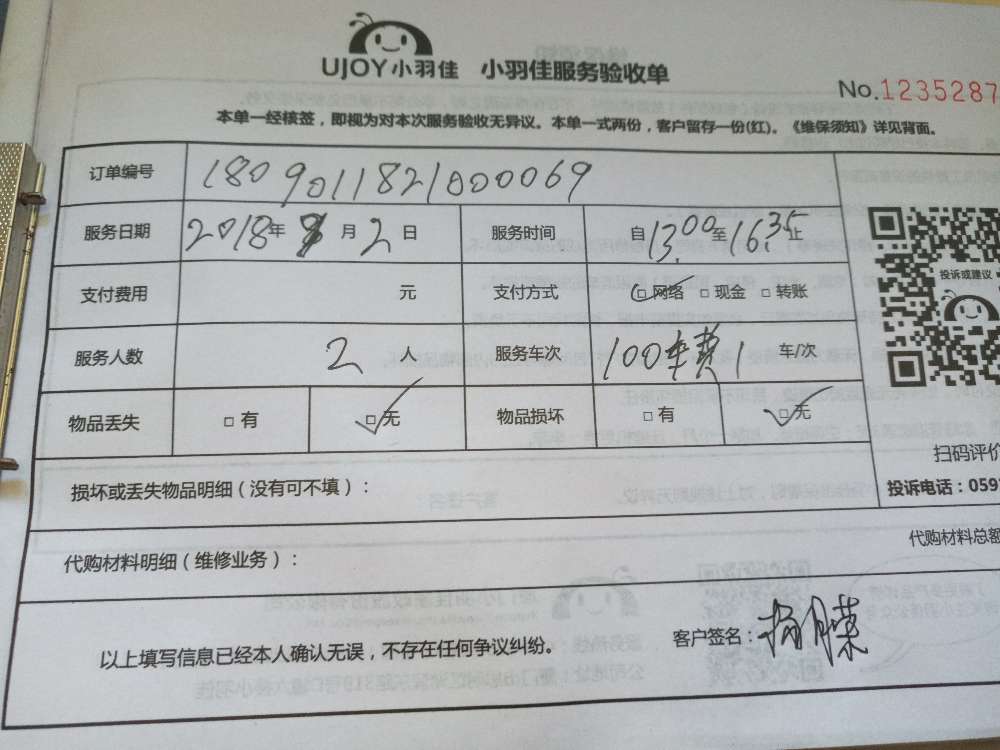 UJOY小羽佳 小羽佳服务验收单
No.1235287
本单一经核签，即视为对本次服务验收无异议。本单一式两份，客户留存一份(红)。《维保须知》详见背面。
订单编号 1809011821000069
服务日期 2018年 9 月 2 日 服务时间 自13:00至16:35止
支付费用 元 支付方式 □网络 □现金 □转账
投诉或建议
服务人数 2 人 服务车次 100车费 1 车/次
物品丢失 □有 □无 物品损坏 □有 □无
扫码评价
损坏或丢失物品明细（没有可不填）：
投诉电话：059
代购材料明细（维修业务）：
代购材料总额
以上填写信息已经本人确认无误，不存在任何争议纠纷。
客户签名：